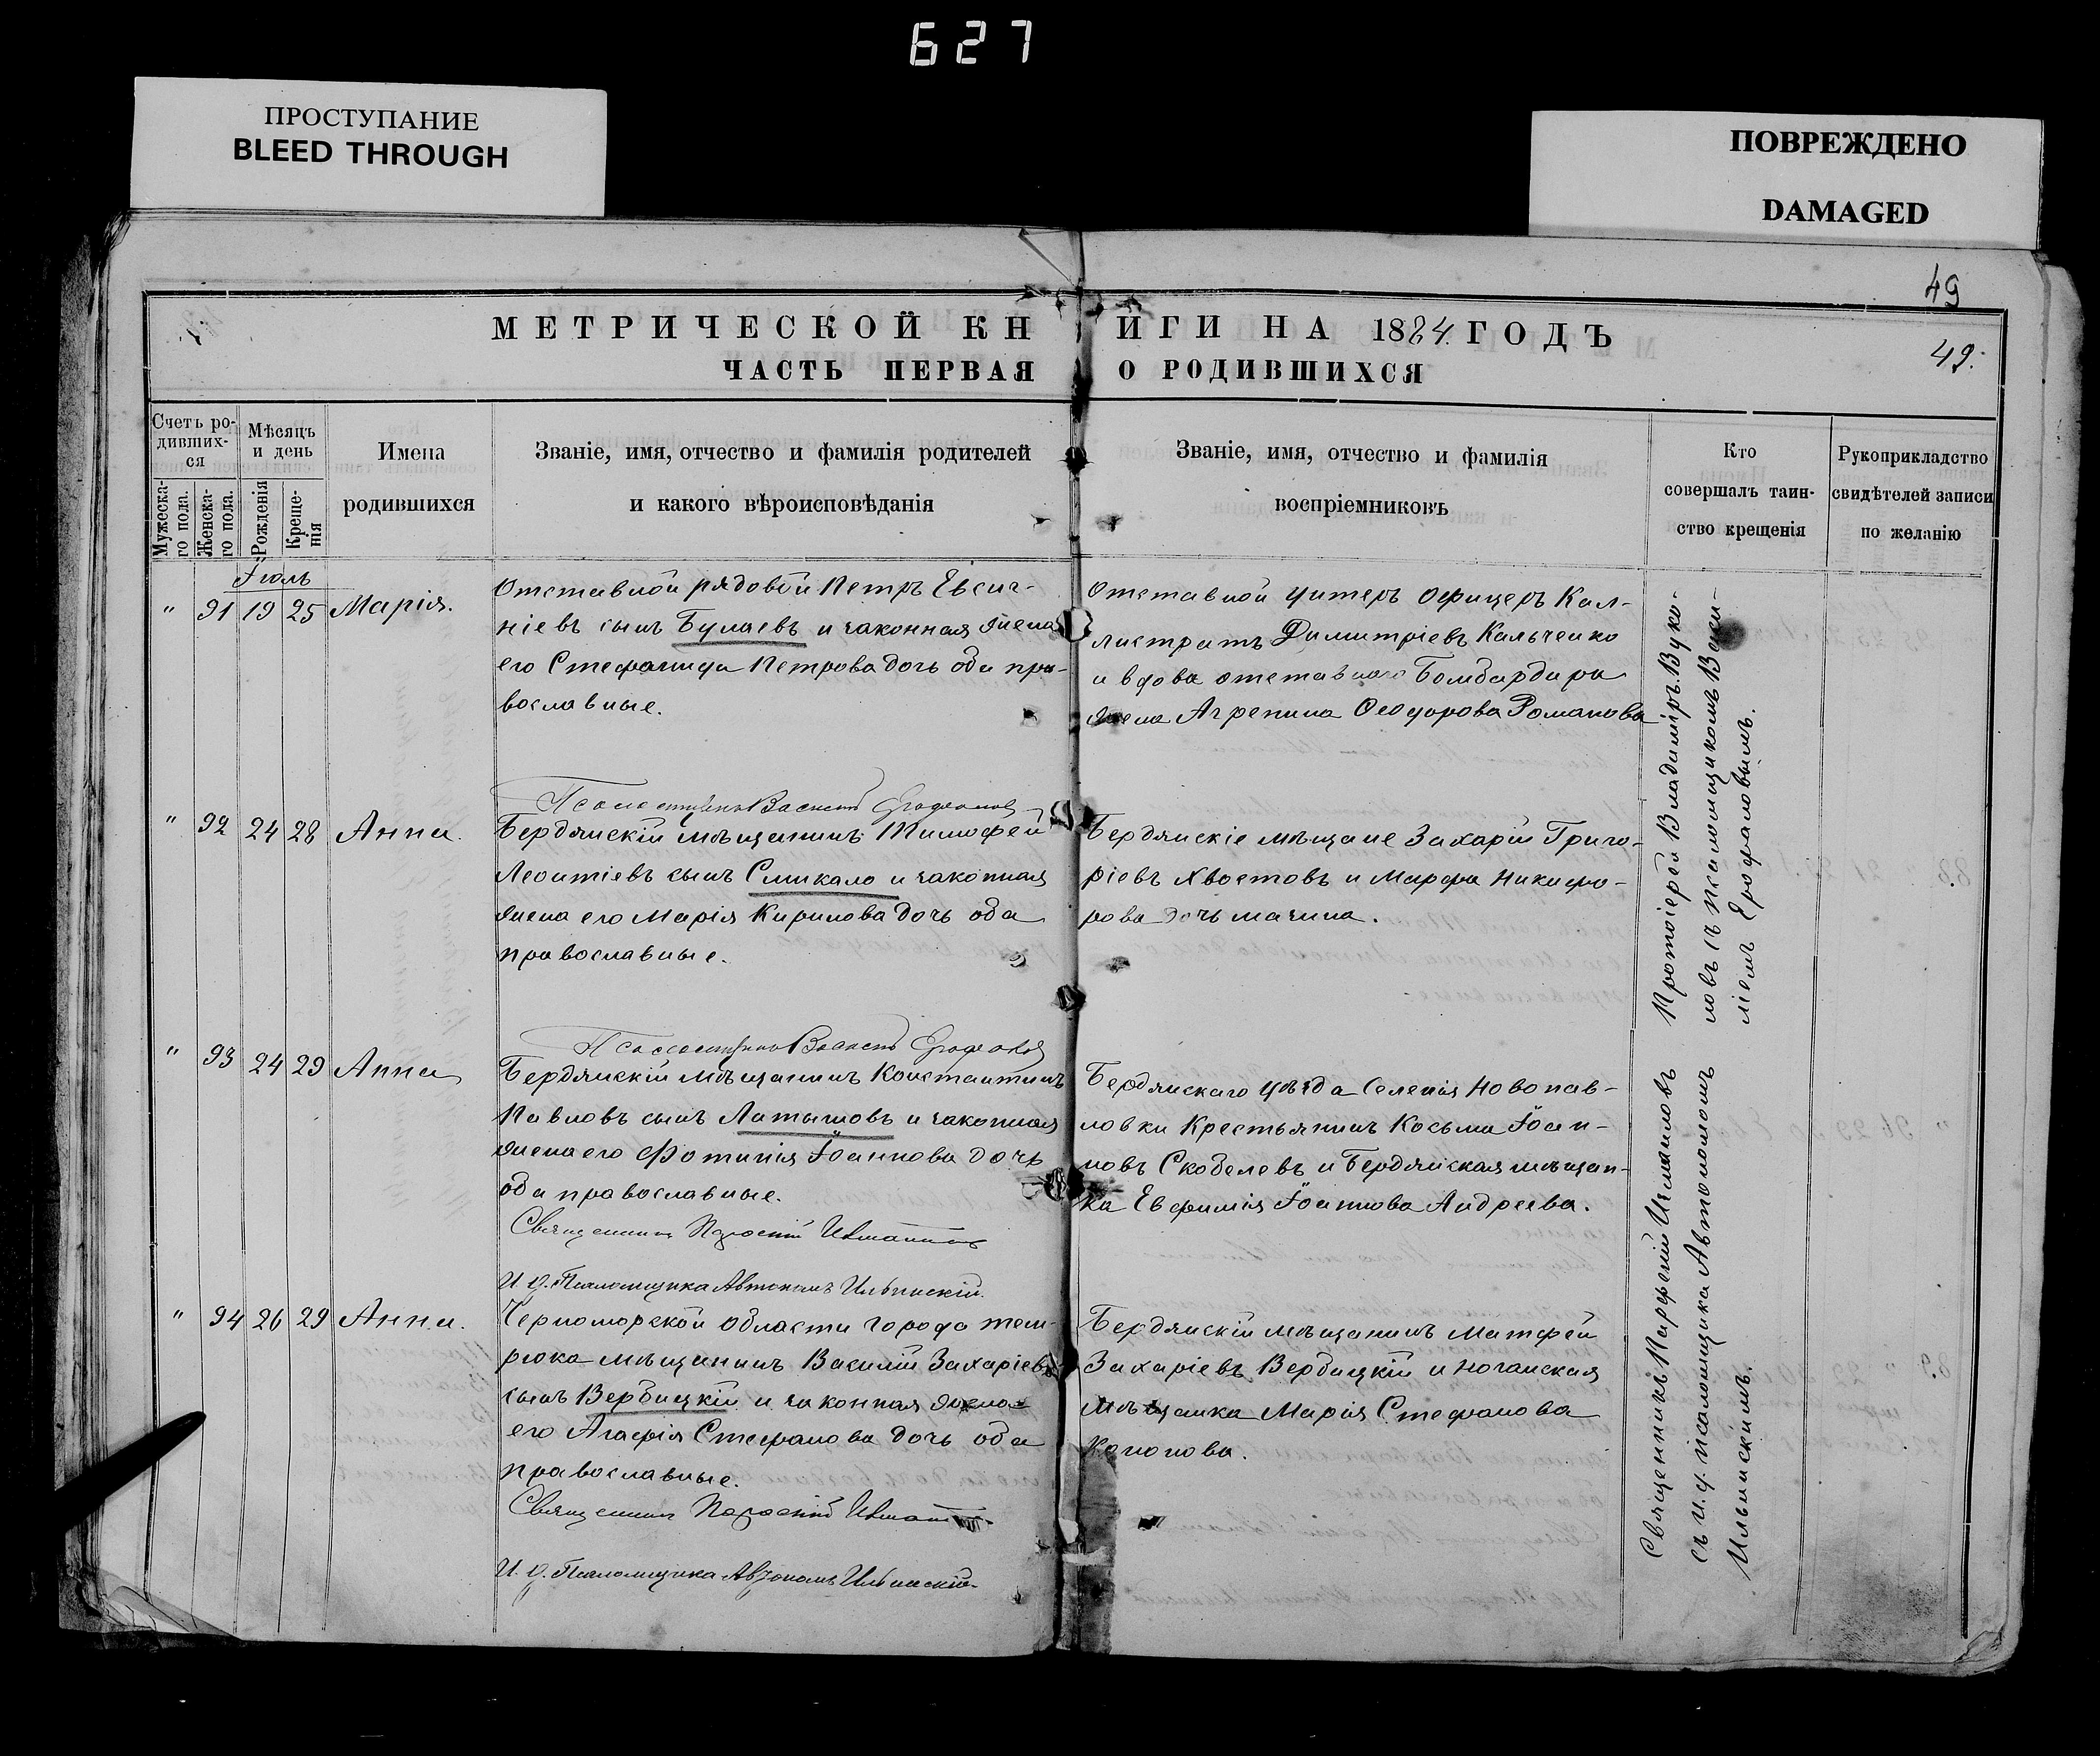 627
ПРОСТУПАНИЕ
BLEED THROUGH
ПОВРЕЖДЕНО
DAMAGED
49
МЕТРИЧЕСКОЙ КНИГИ НА 1884 ГОДЪ
49.
ЧАСТЬ ПЕРВАЯ О РОДИВШИХСЯ
Счетъ ро-
дивших-
ся
Мужеска-
го пола.
Женска-
го пола.
Мѣсяцъ
и день
Рожденія
Креще-
нія
Имена
родившихся
Званіе, имя, отчество и фамилія родителей
и какого вѣроисповѣданія
Званіе, имя, отчество и фамилія
воспріемниковъ
Кто
совершалъ таин-
ство крещенія
Рукоприкладство
свидѣтелей записи
по желанію
Іюль
" 91 19 25 Марія.
Отставной рядовой Петръ Евсиг-
ніевъ сынъ Булаевъ и законная жена
его Стефанида Петрова дочь оба пра-
вославные.
Отставной унтеръ офицеръ Кал-
листратъ Димитріевъ Кальченко
и вдова отставнаго Бомбардира
жена Агрепина Ѳеодорова Романова
Псаломщикъ Василій
" 92 24 28 Анна.
Бердянскій мѣщанинъ Тимофей
Леонтіевъ сынъ Смикало и законная
жена его Марія Кирилова дочь оба
православные.
Бердянскіе мѣщане Захарій Григо-
ріевъ Хвостовъ и Марфа Никифо-
рова дочь
Протоіерей Владиміръ Вуко-
новъ съ псаломщикомъ Васи-
ліемъ Ерофаловымъ.
Псаломщикъ Василій
" 93 24 29 Анна
Бердянскій мѣщанинъ Константинъ
Павловъ сынъ Латышовъ и законная
жена его Фотинія Іоаннова дочь
оба православные.
Священникъ Парфеній
И. д. Псаломщика Автономъ Ильинскій.
Бердянскаго уѣзда Селенія Новопав-
ловки Крестьянинъ Косьма Іоан-
новъ Скобелевъ и Бердянская мѣщан-
ка Евфимія Іоаннова Андреева.
" 94 26 29 Анна.
Черноморской области города тем-
рюка мѣщанинъ Василій Захаріевъ
сынъ Вербицкій и законная жена
его Агафія Стефанова дочь оба
православные.
Священникъ Парфеній
И. д. Псаломщика Автономъ Ильинскій.
Бердянскій мѣщанинъ Матфей
Захаріевъ Вербицкій и Ногайская
мѣщанка Марія Стефанова
Кононова.
Священникъ Парфеній
съ и. д. псаломщика Автономомъ
Ильинскимъ.